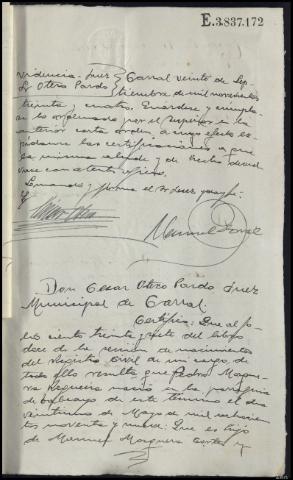 E.3.837.172
Providencia Juez
Sr Otero Pardo
Carral veinte de Sep-
tiembre de mil novecientos
treinta y cuatro. Guárdese y cumpla
se lo ordenado por el Superior en la
anterior carta orden, a cuyo efecto ex-
pídanse las certificaciones a que
la misma alude y de hecho devuel
vase con atento oficio.
Lo mando y firma el Sr Juez
Manuel
Don Cesar Otero Pardo Juez
Municipal de Carral.
Certifico: Que al fo-
lio ciento treinta y siete del libro
doce de la sección de nacimientos
del Registro Civil de mi cargo, de
todo ello resulta que Pedro Mosque-
ra nació en la parroquia
de de este término el dia
veintiuno de Mayo de mil ochocien
tos noventa y nueve: Que es hijo
de Manuel Mosquera Cortes y